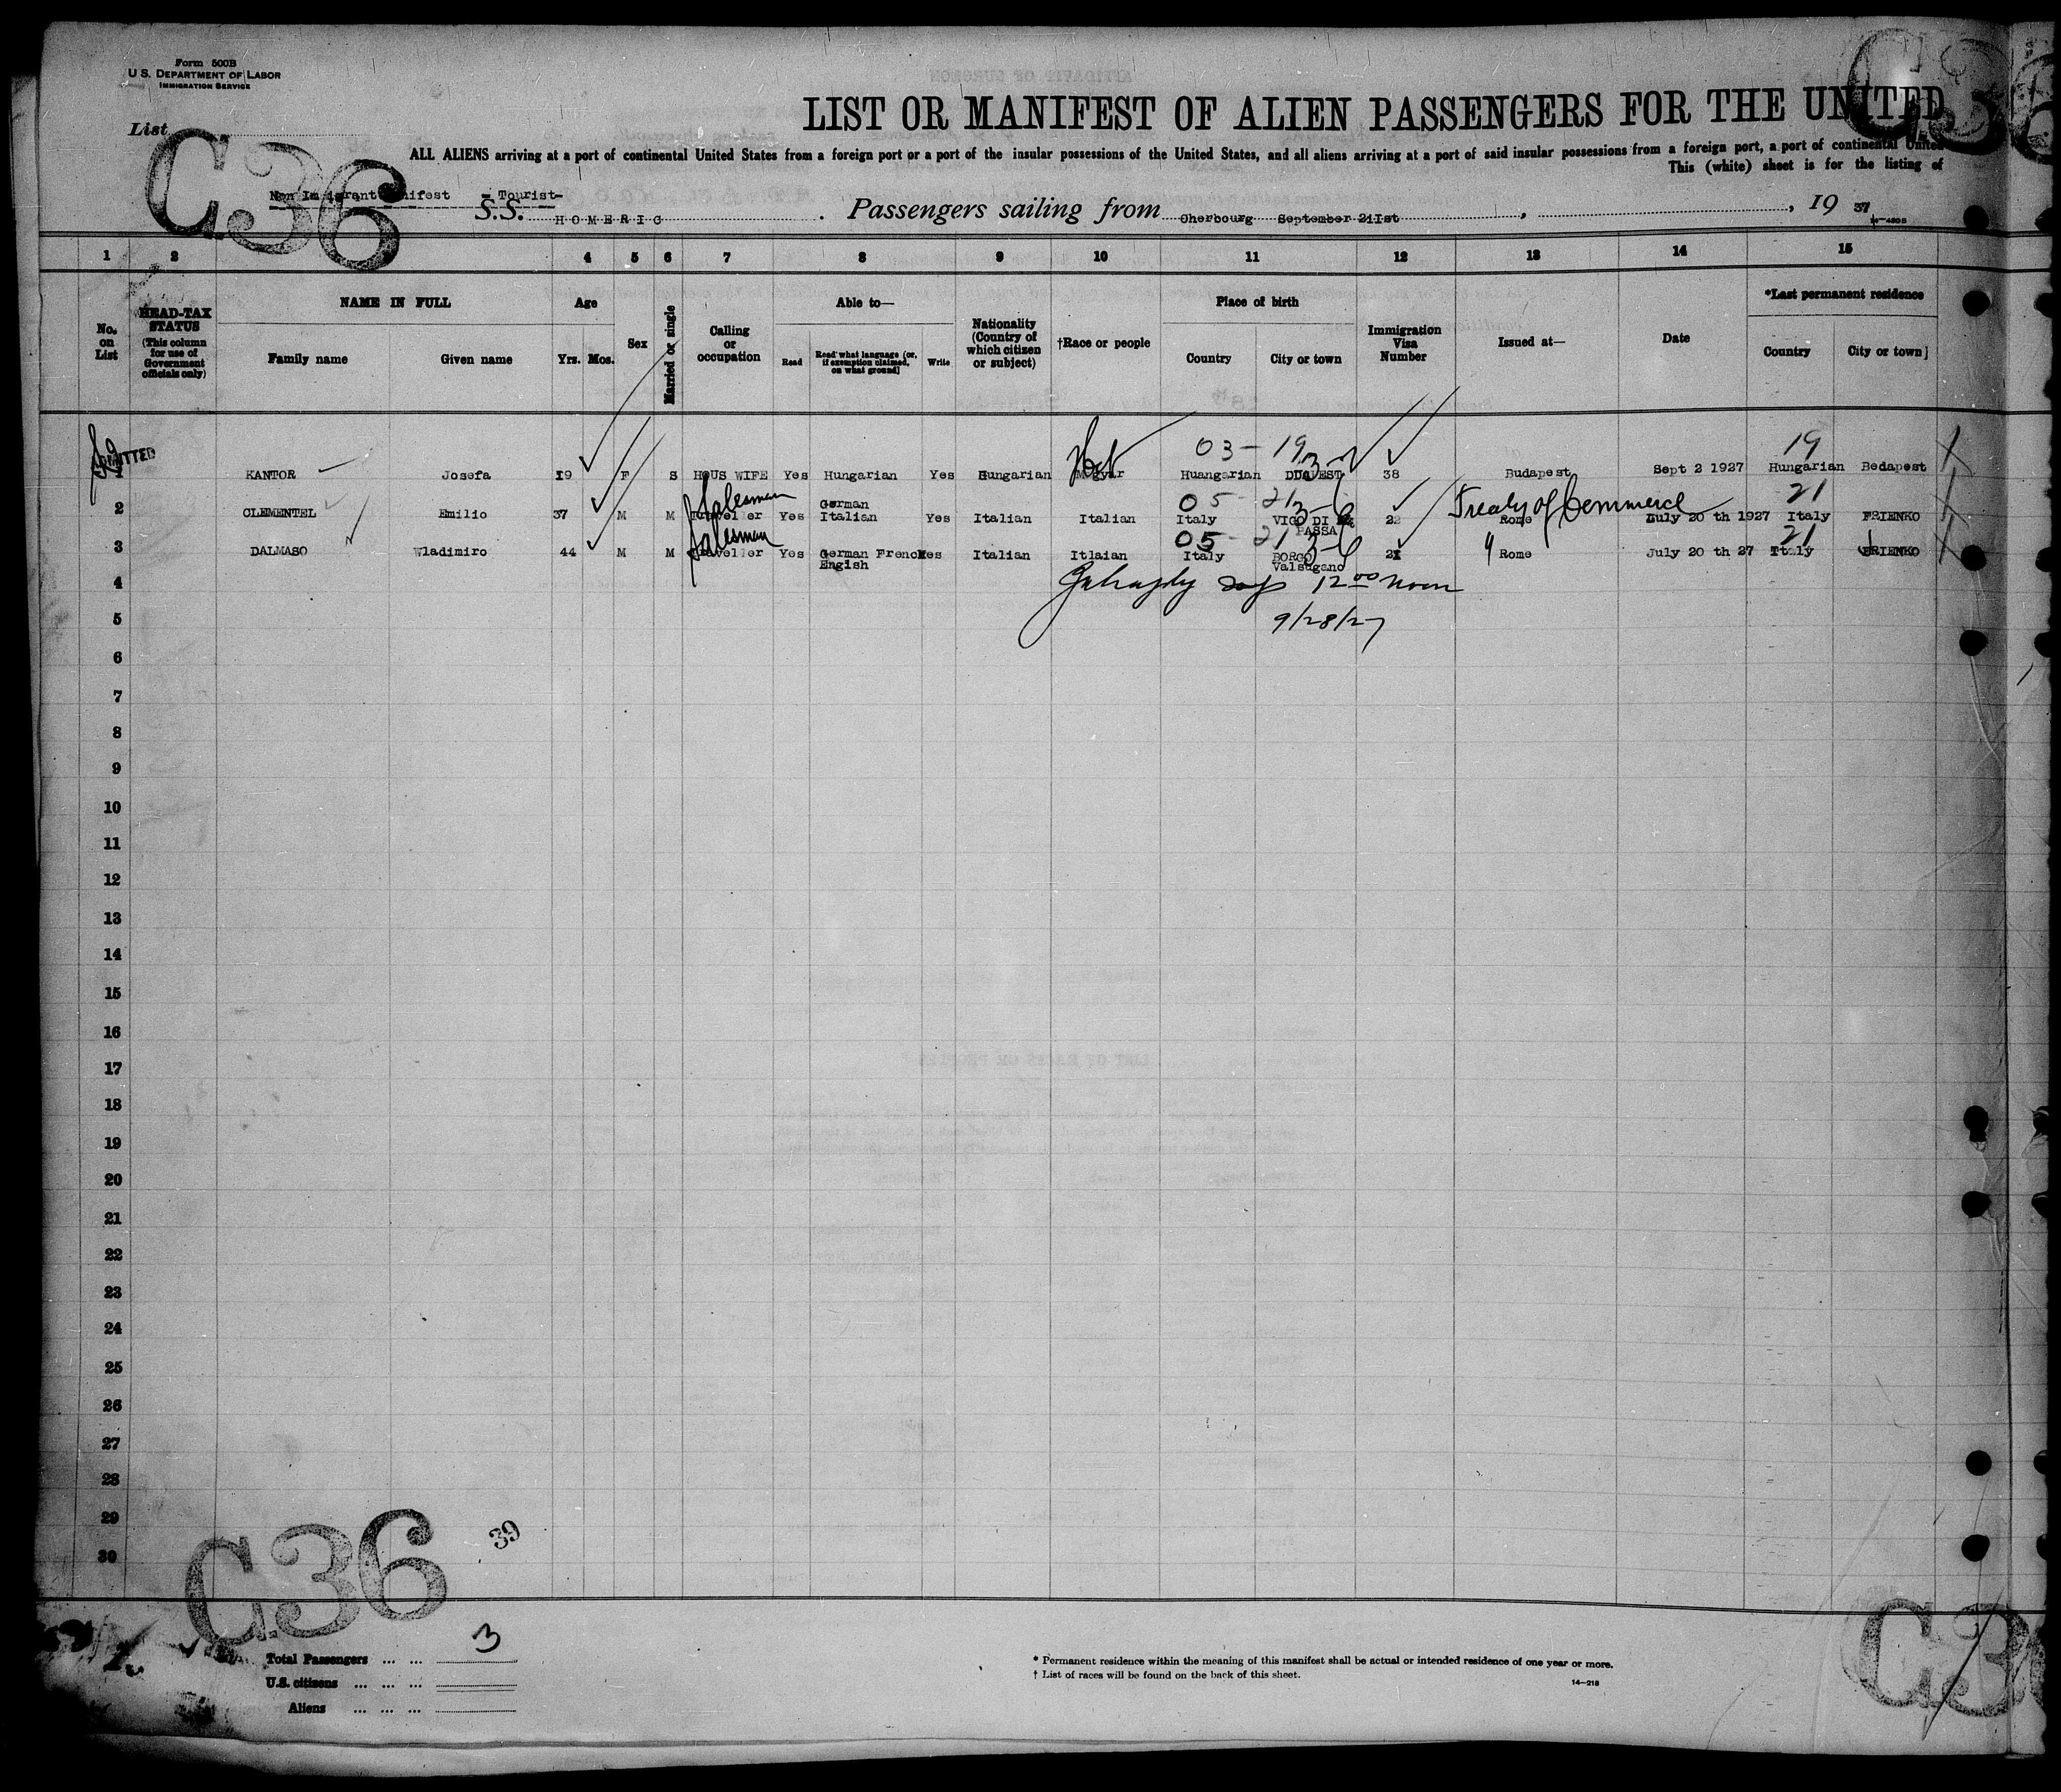 Form 500B
U. S. DEPARTMENT OF LABOR
IMMIGRATION SERVICE
List
LIST OR MANIFEST OF ALIEN PASSENGERS FOR THE UNITED
ALL ALIENS arriving at a port of continental United States from a foreign port or a port of the insular possessions of the United States, and all aliens arriving at a port of said insular possessions from a foreign port, a port of continental United
This (white) sheet is for the listing of
C.36
Non Immigrant Manifest - Tourist-
S.S. HOMERIC . Passengers sailing from Cherbourg September 21Ist , , 19
14-480B
1 2 4 5 6 7 8 9 10 11 12 13 14 15
No. on List
HEAD-TAX STATUS (This column for use of Government officials only)
NAME IN FULL
Family name Given name
Age
Yrs. Mos.
Sex
Married or single
Calling or occupation
Able to—
Read Read what language [or, if exemption claimed, on what ground] Write
Nationality (Country of which citizen or subject)
†Race or people
Place of birth
Country City or town
Immigration Visa Number
Issued at—
Date
*Last permanent residence
Country City or town]
ADMITTED
03-19 19
1 KANTOR Josefa 19 F S HOUS WIFE Yes Hungarian Yes Hungarian Magyar Huangarian 38 Budapest Sept 2 1927 Hungarian Bedapest
Salesman German 05-21 Treaty of Commerce 21
2 CLEMENTEL Emilio 37 M M Traveller Yes Italian Yes Italian Italian Italy VIGO DI 22 Rome July 20 th 1927 Italy FRIENKO
PASSA
Salesman 05-21 21
3 DALMASO Wladimiro 44 M M Traveller Yes German French Yes Italian Itlaian Italy BORGO 21 " Rome July 20 th 27 Italy FRIENKO
Engish Valsugano
4 12 00 noon
5 9/28/27
6
7
8
9
10
11
12
13
14
15
16
17
18
19
20
21
22
23
24
25
26
27
28
29
30
C.36
39
Total Passengers ... ... 3
U.S. citizens ... ... ...
Aliens ... ... ...
* Permanent residence within the meaning of this manifest shall be actual or intended residence of one year or more.
† List of races will be found on the back of this sheet.
14—218